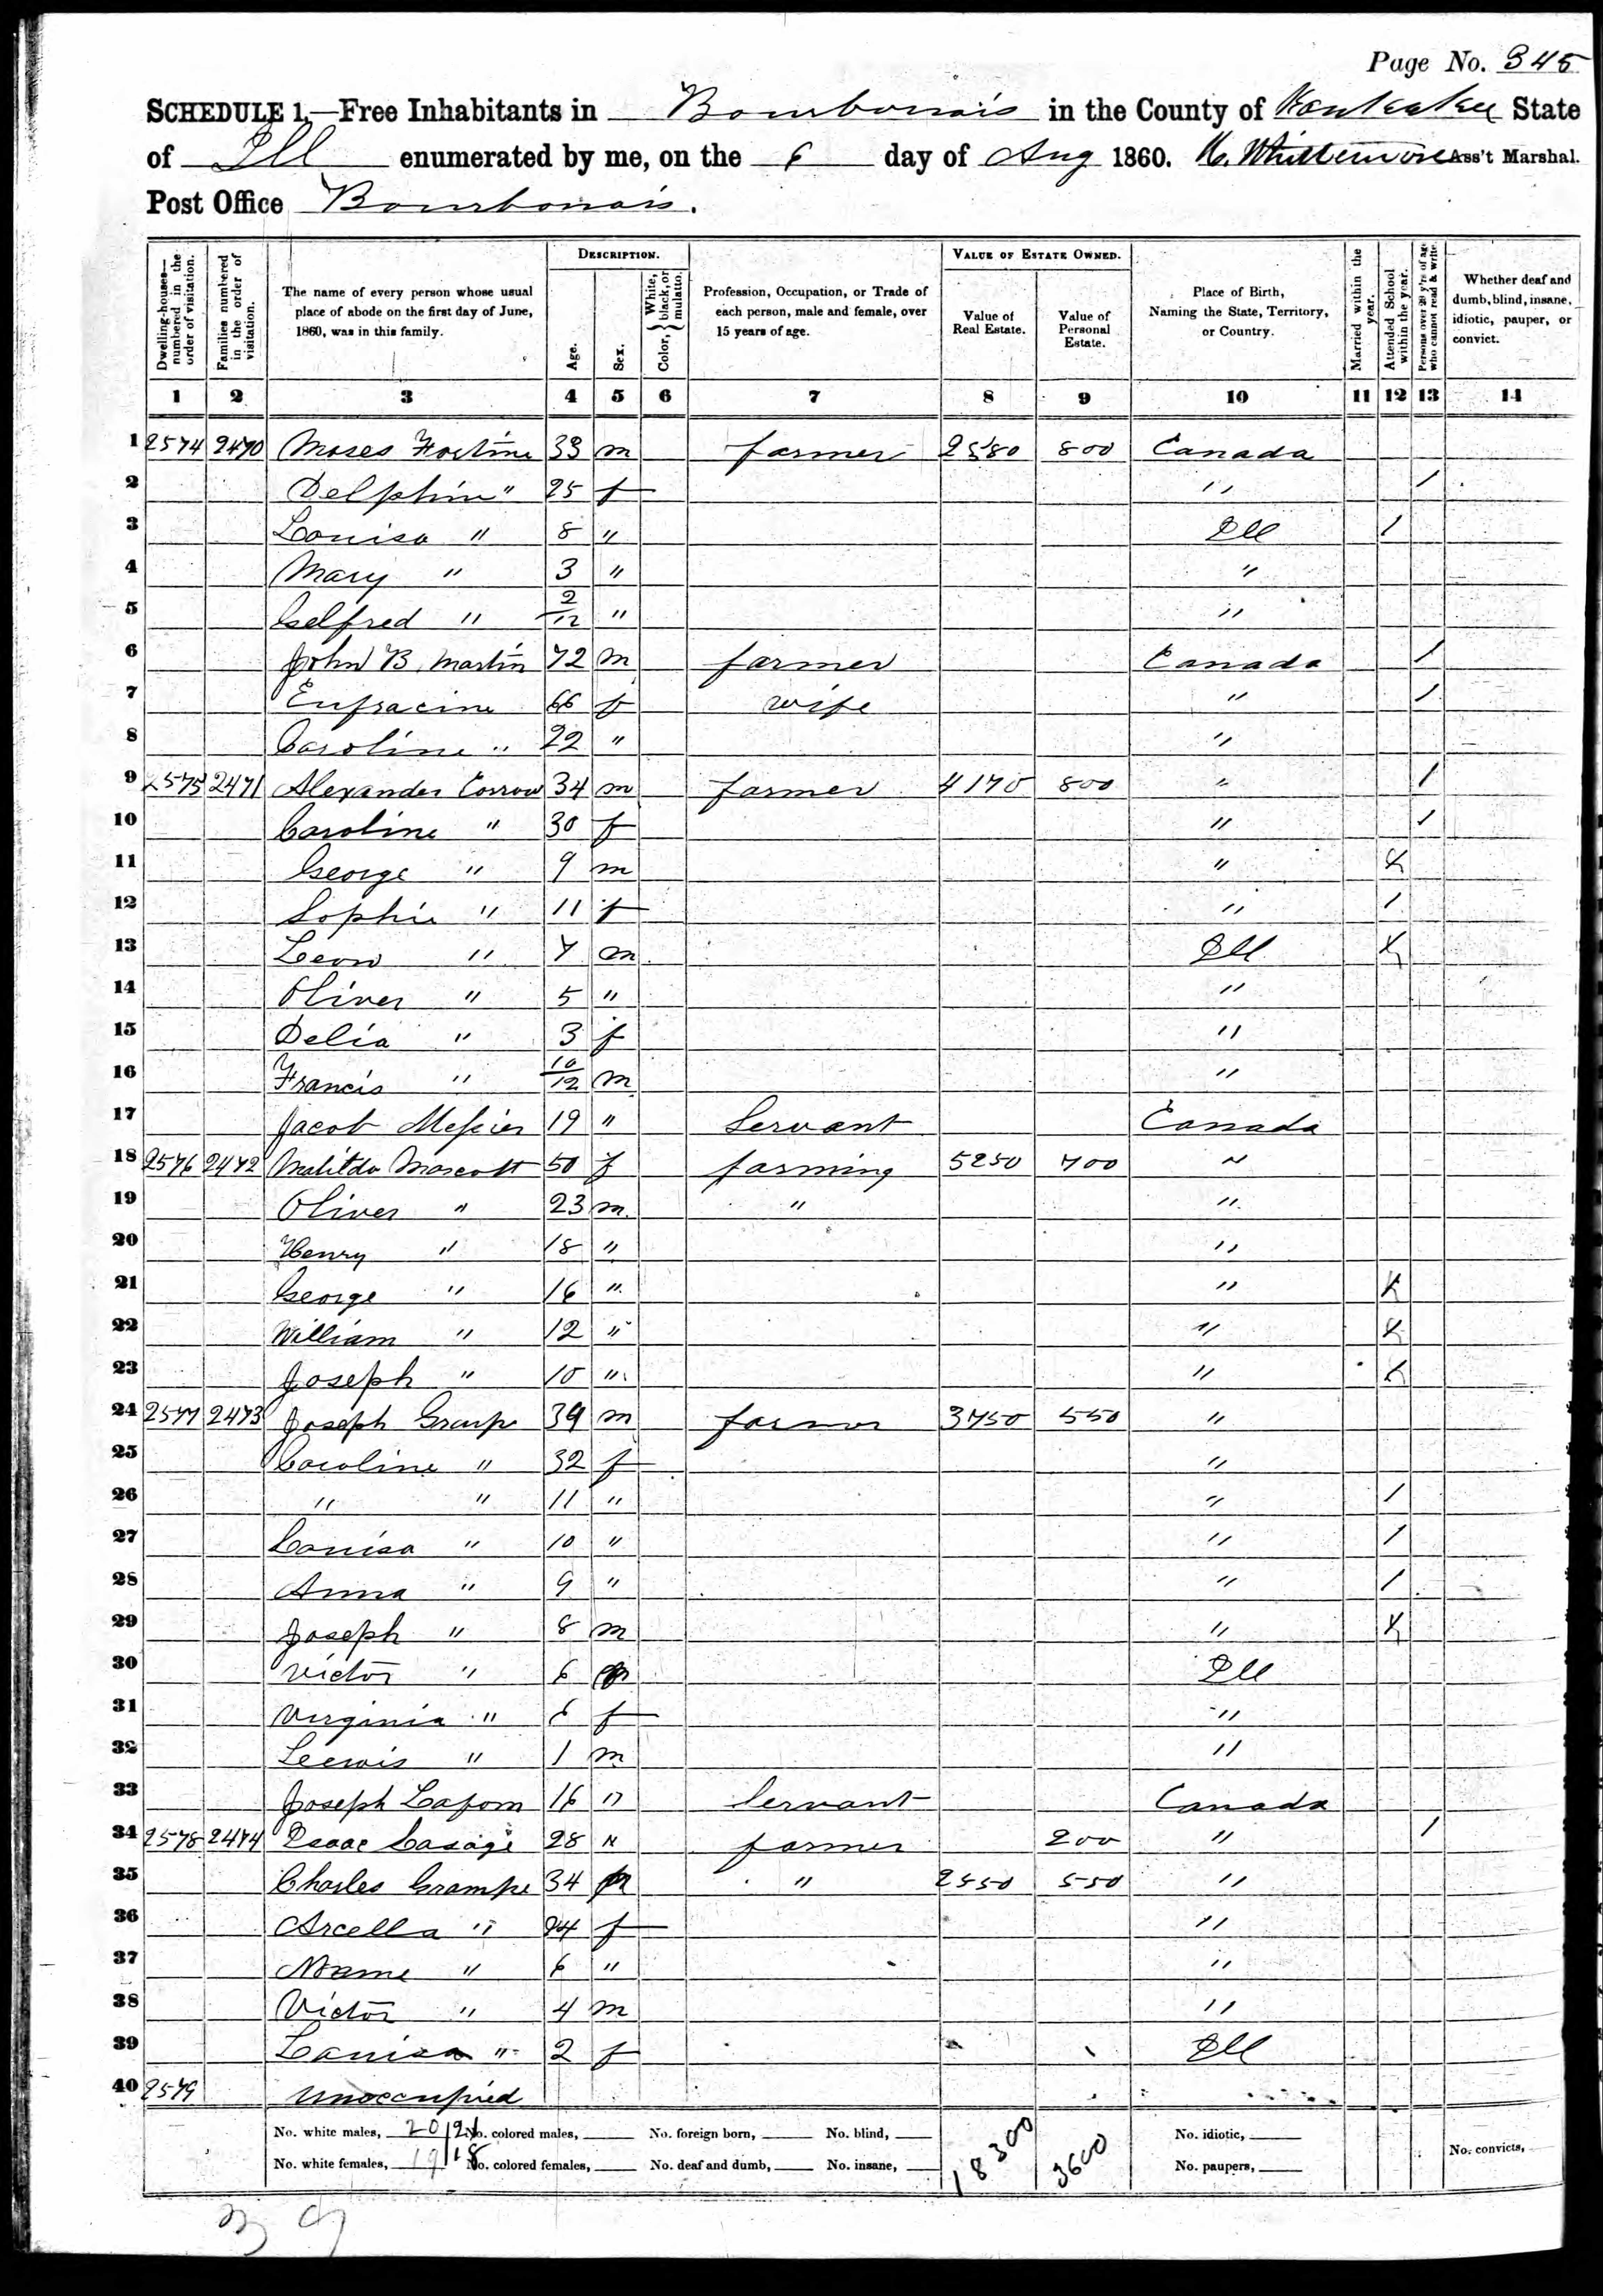 Page No. 345
SCHEDULE 1.—Free Inhabitants in Bourbonais in the County of Kankakee State
of Ill enumerated by me, on the 6 day of Aug 1860. Whittemore Ass't Marshal.
Post Office Bourbonais.
Dwelling-houses—numbered in the order of visitation.
Families numbered in the order of visitation.
The name of every person whose usual place of abode on the first day of June, 1860, was in this family.
DESCRIPTION.
Age.
Sex.
Color, } White, black, or mulatto.
Profession, Occupation, or Trade of each person, male and female, over 15 years of age.
VALUE OF ESTATE OWNED.
Value of Real Estate.
Value of Personal Estate.
Place of Birth, Naming the State, Territory, or Country.
Married within the year.
Attended School within the year.
Persons over 20 y'rs of age who cannot read & write.
Whether deaf and dumb, blind, insane, idiotic, pauper, or convict.
1 2 3 4 5 6 7 8 9 10 11 12 13 14
1 2574 2470 Moses Fortine 33 m farmer 2580 800 Canada
2 Delphin " 25 f " /
3 Louisa " 8 " Ill /
4 Mary " 3 " "
5 Gelfred " 2/12 " "
6 John B. Martin 72 m farmer Canada /
7 Eufracine 66 f wife " /
8 Caroline " 22 " "
9 2575 2471 Alexander Corrow 34 m farmer 4170 800 " /
10 Caroline " 30 f " /
11 George " 9 m "
12 Sophie " 11 f " /
13 Leow " 7 m Ill
14 Oliver " 5 " "
15 Delia " 3 f "
16 Francis " 10/12 m "
17 Jacob Messier 19 " Servant Canada
18 2576 2472 Malitda Marcott 50 f farming 5250 700 "
19 Oliver " 23 m " "
20 Henry " 18 " "
21 George " 16 " "
22 William " 12 " "
23 Joseph " 10 " "
24 2577 2473 Joseph Graupe 39 m farmer 3750 550 "
25 Caroline " 32 f "
26 " " 11 " " /
27 Louisa " 10 " " /
28 Anna " 9 " " /
29 Joseph " 8 m "
30 Victor " 6 Ill
31 Virginia " 6 f "
32 Leewis " 1 m "
33 Joseph Lafom 16 " Servant Canada
34 2578 2474 Isaac Casage 28 " farmer 200 " /
35 Charles Grampe 34 m " 2550 550 "
36 Arcella " 24 f "
37 " 6 " "
38 Victor " 4 m "
39 Louisa " 2 f Ill
40 2579 Unoccupied
No. white males, 20 21 No. colored males, No. foreign born, No. blind, 18300 3600 No. idiotic,
No. white females, 19 18 No. colored females, No. deaf and dumb, No. insane, No. paupers, No. convicts,
39